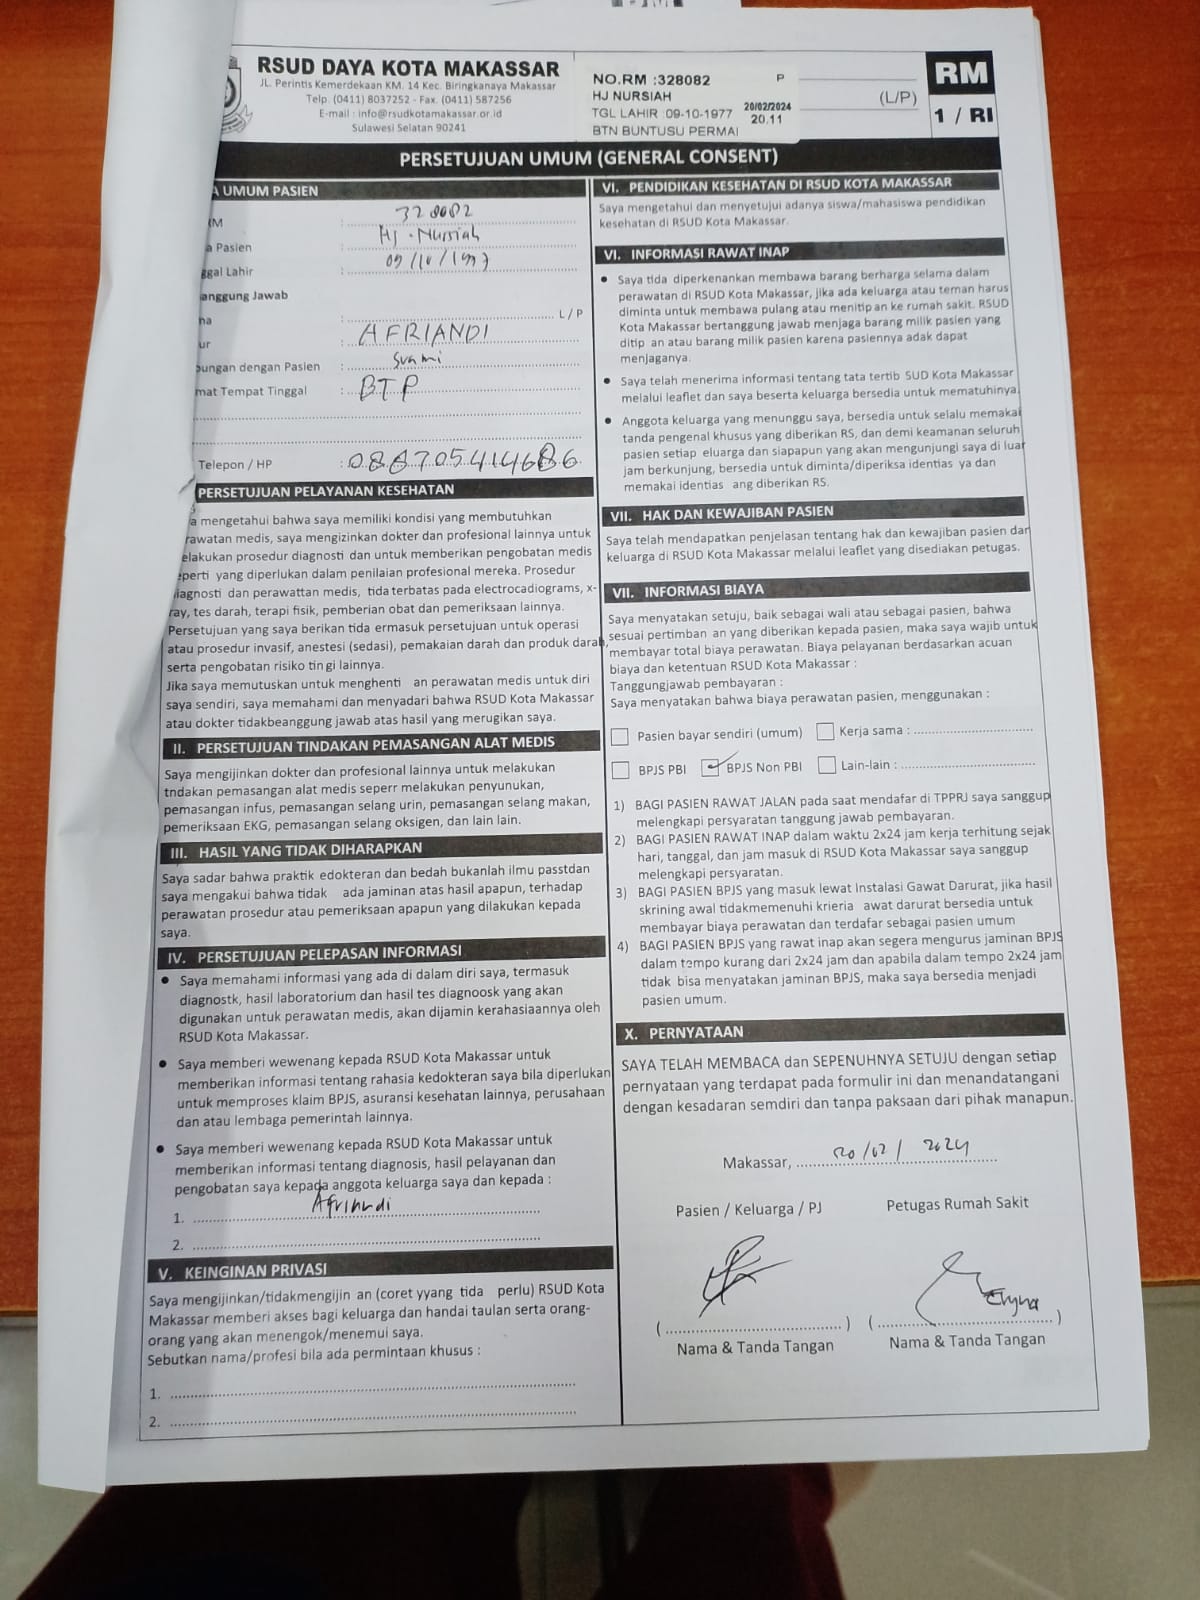 RSUD DAYA KOTA MAKASSAR
JL. Perintis Kemerdekaan KM. 14 Kec. Biringkanaya Makassar
Telp. (0411) 8037252 - Fax. (0411) 587256
E-mail : info@rsudkotamakassar.or.id
Sulawesi Selatan 90241
NO.RM :328082 P
HJ NURSIAH
TGL LAHIR :09-10-1977
BTN BUNTUSU PERMAI
20/02/2024
20.11
(L/P)
RM
1 / RI
PERSETUJUAN UMUM (GENERAL CONSENT)
A UMUM PASIEN
RM : 328082
a Pasien : Hj. Nursiah
ggal Lahir : 09/10/1977
anggung Jawab
na : L / P
ur : AFRIANDI
oungan dengan Pasien : Suami
mat Tempat Tinggal : BTP
Telepon / HP : 088705414686
PERSETUJUAN PELAYANAN KESEHATAN
a mengetahui bahwa saya memiliki kondisi yang membutuhkan
rawatan medis, saya mengizinkan dokter dan profesional lainnya untuk
elakukan prosedur diagnosti dan untuk memberikan pengobatan medis
eperti yang diperlukan dalam penilaian profesional mereka. Prosedur
iagnosti dan perawattan medis, tida terbatas pada electrocadiograms, x-
ray, tes darah, terapi fisik, pemberian obat dan pemeriksaan lainnya.
Persetujuan yang saya berikan tida ermasuk persetujuan untuk operasi
atau prosedur invasif, anestesi (sedasi), pemakaian darah dan produk darah,
serta pengobatan risiko tin gi lainnya.
Jika saya memutuskan untuk menghenti an perawatan medis untuk diri
saya sendiri, saya memahami dan menyadari bahwa RSUD Kota Makassar
atau dokter tidakbeanggung jawab atas hasil yang merugikan saya.
II. PERSETUJUAN TINDAKAN PEMASANGAN ALAT MEDIS
Saya mengijinkan dokter dan profesional lainnya untuk melakukan
tndakan pemasangan alat medis seperr melakukan penyunukan,
pemasangan infus, pemasangan selang urin, pemasangan selang makan,
pemeriksaan EKG, pemasangan selang oksigen, dan lain lain.
III. HASIL YANG TIDAK DIHARAPKAN
Saya sadar bahwa praktik edokteran dan bedah bukanlah ilmu passtdan
saya mengakui bahwa tidak ada jaminan atas hasil apapun, terhadap
perawatan prosedur atau pemeriksaan apapun yang dilakukan kepada
saya.
IV. PERSETUJUAN PELEPASAN INFORMASI
• Saya memahami informasi yang ada di dalam diri saya, termasuk
diagnostk, hasil laboratorium dan hasil tes diagnoosk yang akan
digunakan untuk perawatan medis, akan dijamin kerahasiaannya oleh
RSUD Kota Makassar.
• Saya memberi wewenang kepada RSUD Kota Makassar untuk
memberikan informasi tentang rahasia kedokteran saya bila diperlukan
untuk memproses klaim BPJS, asuransi kesehatan lainnya, perusahaan
dan atau lembaga pemerintah lainnya.
• Saya memberi wewenang kepada RSUD Kota Makassar untuk
memberikan informasi tentang diagnosis, hasil pelayanan dan
pengobatan saya kepada anggota keluarga saya dan kepada :
1. Afriandi
2.
V. KEINGINAN PRIVASI
Saya mengijinkan/tidakmengijin an (coret yyang tida perlu) RSUD Kota
Makassar memberi akses bagi keluarga dan handai taulan serta orang-
orang yang akan menengok/menemui saya.
Sebutkan nama/profesi bila ada permintaan khusus :
1.
2.
VI. PENDIDIKAN KESEHATAN DI RSUD KOTA MAKASSAR
Saya mengetahui dan menyetujui adanya siswa/mahasiswa pendidikan
kesehatan di RSUD Kota Makassar.
VI. INFORMASI RAWAT INAP
• Saya tida diperkenankan membawa barang berharga selama dalam
perawatan di RSUD Kota Makassar, jika ada keluarga atau teman harus
diminta untuk membawa pulang atau menitip an ke rumah sakit. RSUD
Kota Makassar bertanggung jawab menjaga barang milik pasien yang
ditip an atau barang milik pasien karena pasiennya adak dapat
menjaganya.
• Saya telah menerima informasi tentang tata tertib SUD Kota Makassar
melalui leaflet dan saya beserta keluarga bersedia untuk mematuhinya
• Anggota keluarga yang menunggu saya, bersedia untuk selalu memakai
tanda pengenal khusus yang diberikan RS, dan demi keamanan seluruh
pasien setiap eluarga dan siapapun yang akan mengunjungi saya di luar
jam berkunjung, bersedia untuk diminta/diperiksa identias ya dan
memakai identias ang diberikan RS.
VII. HAK DAN KEWAJIBAN PASIEN
Saya telah mendapatkan penjelasan tentang hak dan kewajiban pasien dan
keluarga di RSUD Kota Makassar melalui leaflet yang disediakan petugas.
VII. INFORMASI BIAYA
Saya menyatakan setuju, baik sebagai wali atau sebagai pasien, bahwa
sesuai pertimban an yang diberikan kepada pasien, maka saya wajib untuk
membayar total biaya perawatan. Biaya pelayanan berdasarkan acuan
biaya dan ketentuan RSUD Kota Makassar :
Tanggungjawab pembayaran :
Saya menyatakan bahwa biaya perawatan pasien, menggunakan :
Pasien bayar sendiri (umum) Kerja sama :
BPJS PBI BPJS Non PBI Lain-lain :
1) BAGI PASIEN RAWAT JALAN pada saat mendafar di TPPRJ saya sanggup
melengkapi persyaratan tanggung jawab pembayaran.
2) BAGI PASIEN RAWAT INAP dalam waktu 2x24 jam kerja terhitung sejak
hari, tanggal, dan jam masuk di RSUD Kota Makassar saya sanggup
melengkapi persyaratan.
3) BAGI PASIEN BPJS yang masuk lewat Instalasi Gawat Darurat, jika hasil
skrining awal tidakmemenuhi krieria awat darurat bersedia untuk
membayar biaya perawatan dan terdafar sebagai pasien umum
4) BAGI PASIEN BPJS yang rawat inap akan segera mengurus jaminan BPJS
dalam tempo kurang dari 2x24 jam dan apabila dalam tempo 2x24 jam
tidak bisa menyatakan jaminan BPJS, maka saya bersedia menjadi
pasien umum.
X. PERNYATAAN
SAYA TELAH MEMBACA dan SEPENUHNYA SETUJU dengan setiap
pernyataan yang terdapat pada formulir ini dan menandatangani
dengan kesadaran semdiri dan tanpa paksaan dari pihak manapun.
Makassar, 20/02/2024
Pasien / Keluarga / PJ Petugas Rumah Sakit
(                ) (                )
Nama & Tanda Tangan Nama & Tanda Tangan